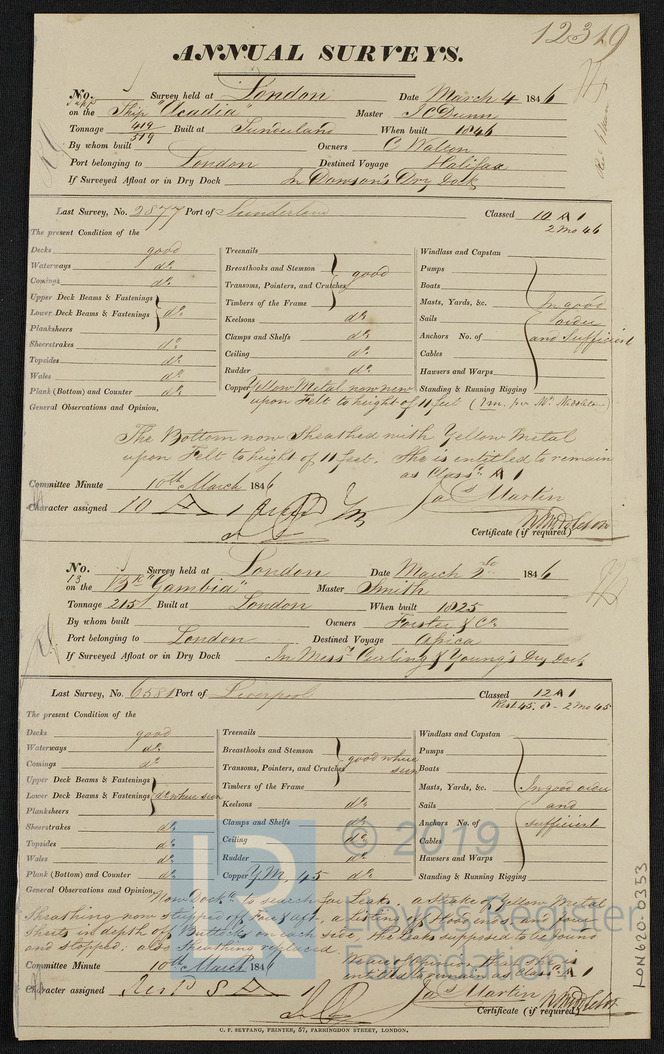 12319
ANNUAL SURVEYS.
No. Survey held at London Date March 4 1846
on the Ship "Acadia" Master
Tonnage 419/519 Built at Sunderland When built 1846
By whom built Owners C Walton
Port belonging to London Destined Voyage Halifax
If Surveyed Afloat or in Dry Dock In Dowson's Dry Dock
Last Survey, No. 2877 Port of Sunderland Classed 10 A 1
2 Mo 46
The present Condition of the
Decks good
Waterways do.
Comings do.
Upper Deck Beams & Fastenings
Lower Deck Beams & Fastenings do.
Planksheers
Sheerstrakes do.
Topsides do.
Wales do.
Plank (Bottom) and Counter do.
Treenails
Breasthooks and Stemson good
Transoms, Pointers, and Crutches
Timbers of the Frame
Keelsons do.
Clamps and Shelfs do.
Ceiling do.
Rudder do.
Copper Yellow Metal now new
upon Felt to height of 11 feet
Windlass and Capstan
Pumps
Boats
Masts, Yards, &c. In good
Sails order
Anchors No. of and sufficient
Cables
Hawsers and Warps
Standing & Running Rigging
General Observations and Opinion,
The Bottom now Sheathed with Yellow Metal
upon Felt to height of 11 feet. She is entitled to remain
as Class'd A 1
Committee Minute 10th March 1846
Character assigned 10 A 1
Jas Martin
Certificate (if required)
No. Survey held at London Date March 2nd 1846
13
on the Bk "Gambia" Master Smith
Tonnage 215 Built at London When built 1825
By whom built Owners Forster & Co
Port belonging to London Destined Voyage Africa
If Surveyed Afloat or in Dry Dock In Messrs Curling & Young's Dry Dock
Last Survey, No. 6581 Port of Liverpool Classed 12 A 1
Rest. 45. 8 - 2 Mo 45
The present Condition of the
Decks good
Waterways do.
Comings do.
Upper Deck Beams & Fastenings
Lower Deck Beams & Fastenings do. where seen
Planksheers
Sheerstrakes do.
Topsides do.
Wales do.
Plank (Bottom) and Counter do.
Treenails
Breasthooks and Stemson good where
Transoms, Pointers, and Crutches seen
Timbers of the Frame
Keelsons do.
Clamps and Shelfs do.
Ceiling do.
Rudder do.
Copper Y.M. 45
Windlass and Capstan
Pumps
Boats
Masts, Yards, &c. In good order
Sails and
Anchors No. of sufficient
Cables
Hawsers and Warps
Standing & Running Rigging
General Observations and Opinion, Now Dock'd to search for Leak. a Strake of Yellow Metal
Sheathing now stripped off fore & aft, a listing of Hood ends and four
Sheets in depth of Buttocks on each side. the Leaks supposed to be found
and stopped. also Sheathing replaced.
entitled to remain as Class'd A 1
Committee Minute 10th March 1846
Character assigned A 1
Jas Martin
Certificate (if required)
C. F. SEYFANG, PRINTER, 57, FARRINGDON STREET, LONDON.
LON620-0353
LR
© 2019
Lloyd's Register
Foundation